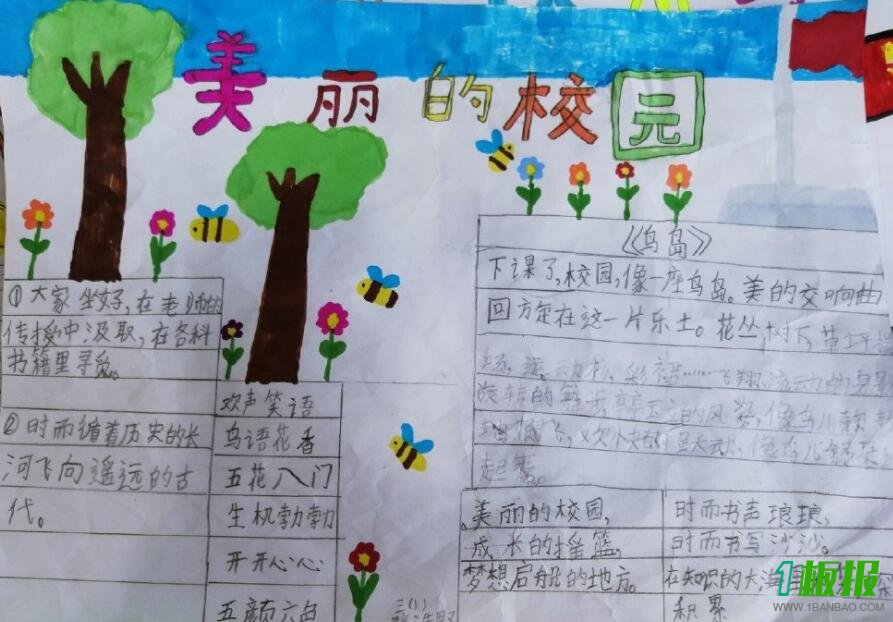 美丽的校园
①大家坐好,在老师的
传授中汲取,在各科
书籍里寻觅。
②时而循着历史的长
河飞向遥远的古
代。
欢声笑语
鸟语花香
五花八门
生机勃勃
开开心心
五颜六色
《鸟岛》
下课了,校园,像一座鸟岛。美的交响曲
回方定在这一片乐土。花丛,树下,草坪
彩裙……飞翔、流动的
旋转的舞步,亭亭玉立的风姿,像鸟儿
起舞。
美丽的校园,
成长的摇篮,
梦想启航的地方。
时而书声琅琅,
时而书写沙沙。
在知识的大海里
积累
三(1)
1板报
WWW.1BANBAO.COM